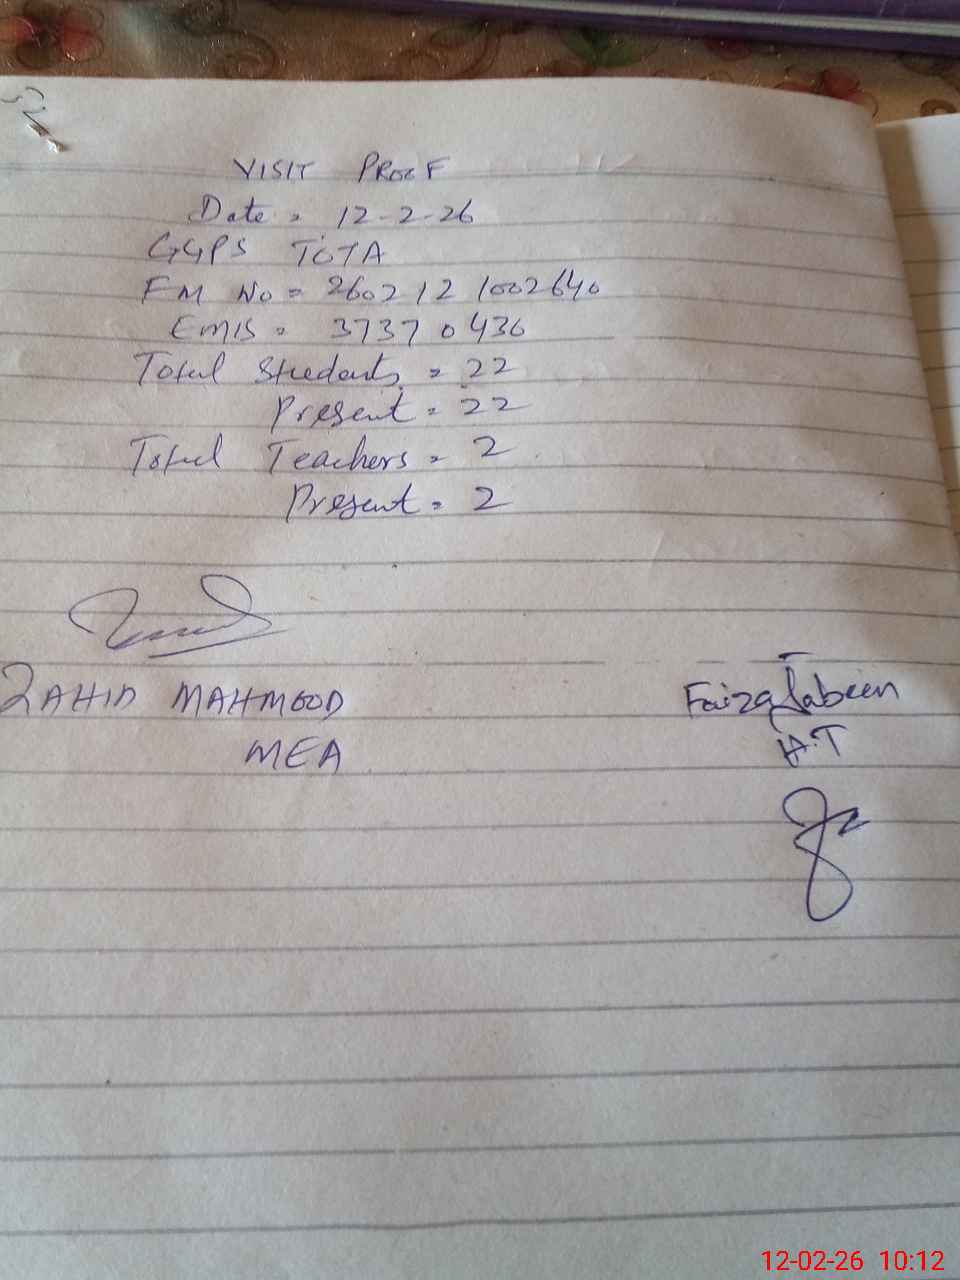 VISIT PROOF
Date = 12-2-26
GGPS TOTA
FM No = 2602121002640
EMIS = 37370436
Total Students = 22
Present = 22
Total Teachers = 2
Present = 2
ZAHID MAHMOOD
MEA
Faiza Jabeen
H.T
12-02-26 10:12